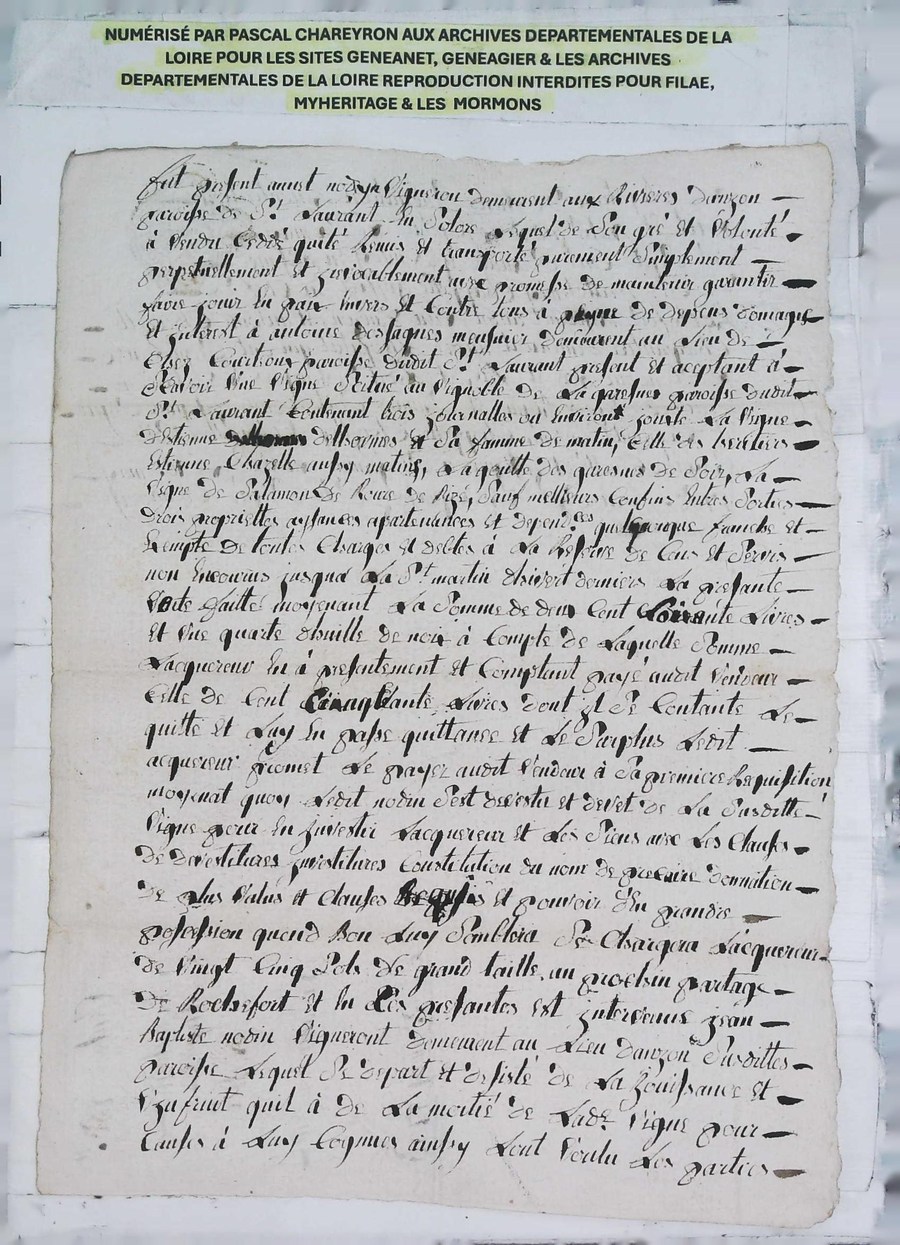 NUMÉRISÉ PAR PASCAL CHAREYRON AUX ARCHIVES DEPARTEMENTALES DE LA
LOIRE POUR LES SITES GENEANET, GENEAGIER & LES ARCHIVES
DEPARTEMENTALES DE LA LOIRE REPRODUCTION INTERDITES POUR FILAE,
MYHERITAGE & LES MORMONS
fut present nodin Vigneron demeurent aux Rivieres danzon
paroisse de St Laurant En Solore Lequel de Son gré et Volonté
à Vendu Cedé quité Remis et transporté purement Simplement
perpetuellement et jrevocablement avec promesse de maintenir garantir
faire jouir En paix Envers et Contre tous à peyne de depens domages
et jnterest à antoine dessagnes meusnier demeurant au Lieu de
Chez paroisse dudit St Laurant present et aceptant à
Scavoir Vne Vigne Scitué au Vignoble de La garesnes paroisse dudit
St Laurant Contenant trois Jornalles ou Environt jouste La Vigne
destienne delhormes et Sa famme de matin, Celle des heritiers
Estienne Chazelle aussy matins, La goutte des garesnes de Soir, La
Vigne de Salamon De Roure de Bizé, Sauf meilleurs Confins Entres Sorties
Drois proprietés aysances apartenances et depend.ces quelquonque franche et
Exempte de toutes Charges et debtes à La Reserve de Cens et Servis
non Encourus jusqua La St martin dhivert derniers La presante
Vente faitte moyenant La Somme de deux Cent Livres
et Vne quarte dhuille de noix à Compte de Laquelle Somme
Lacquereur En à presentement et Comptant payé audit Vendeur
Celle de Cent Cinquante Livres dont jl Se Contante Le
quitte et Luy En passe quittance et Le Surplus Ledit
acquereur promet Le payer audit Vendeur à Sa premiere Requisition
moyenat quoy Ledit nodin Sest devestu et devet de La Susditte
Vigne pour En jnvestir Lacquereur et Les Siens avec Les Clauses
de devestitures jnvestitures Constitution du nom de precaire donnation
de plus Valus et Clauses Requises et pouvoir den prandre
possession quand Bon Luy Semblera Se Chargera Lacquereur
de Vingt Cinq Sols de grand taille au prochin partage
de Rochefort et En Ces presantes est jntervenus jean
Baptiste nodin Vigneront demeurent au Lieu danzon Susdittes
paroisse Lequel Se depart et desisté de La Jouissance et
Vzufruit quil à de La moitié de Ladte Vigne pour
Causes à Luy Cognues ainsy Lont Voulu Les parties